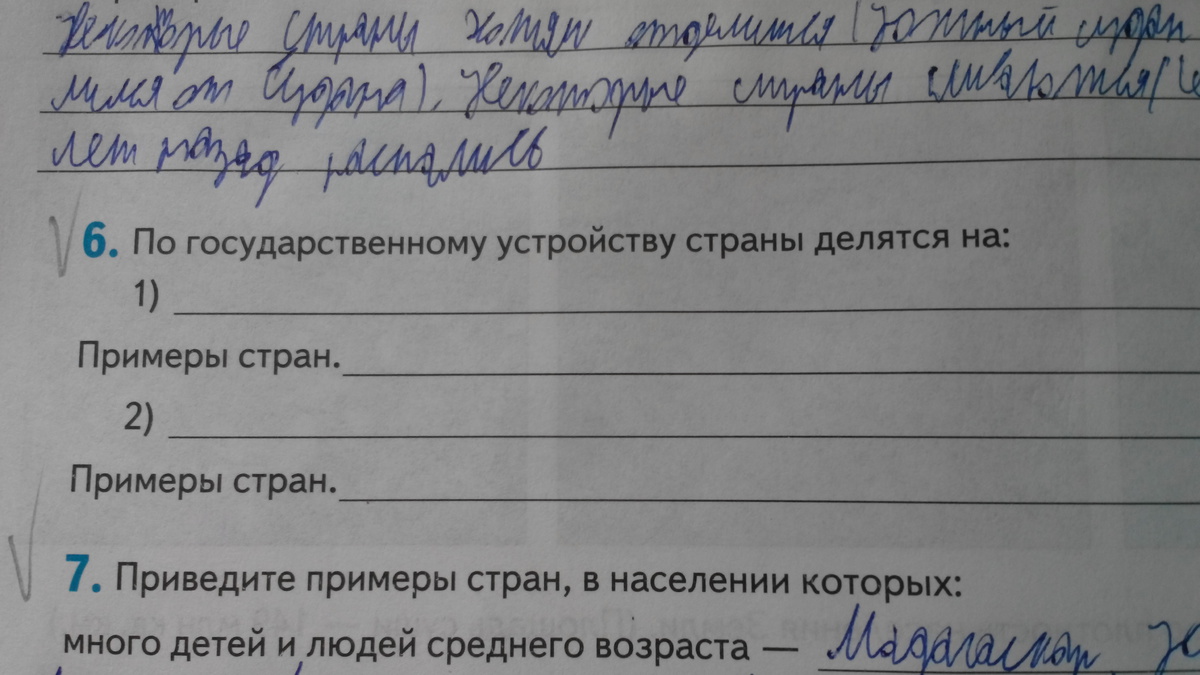 Некоторые страны хотят отделится (Южный судан
лился от Судана). Некоторые страны сливаются (
лет назад распались
6. По государственному устройству страны делятся на:
1)
Примеры стран.
2)
Примеры стран.
7. Приведите примеры стран, в населении которых:
много детей и людей среднего возраста — Мадагаскар,